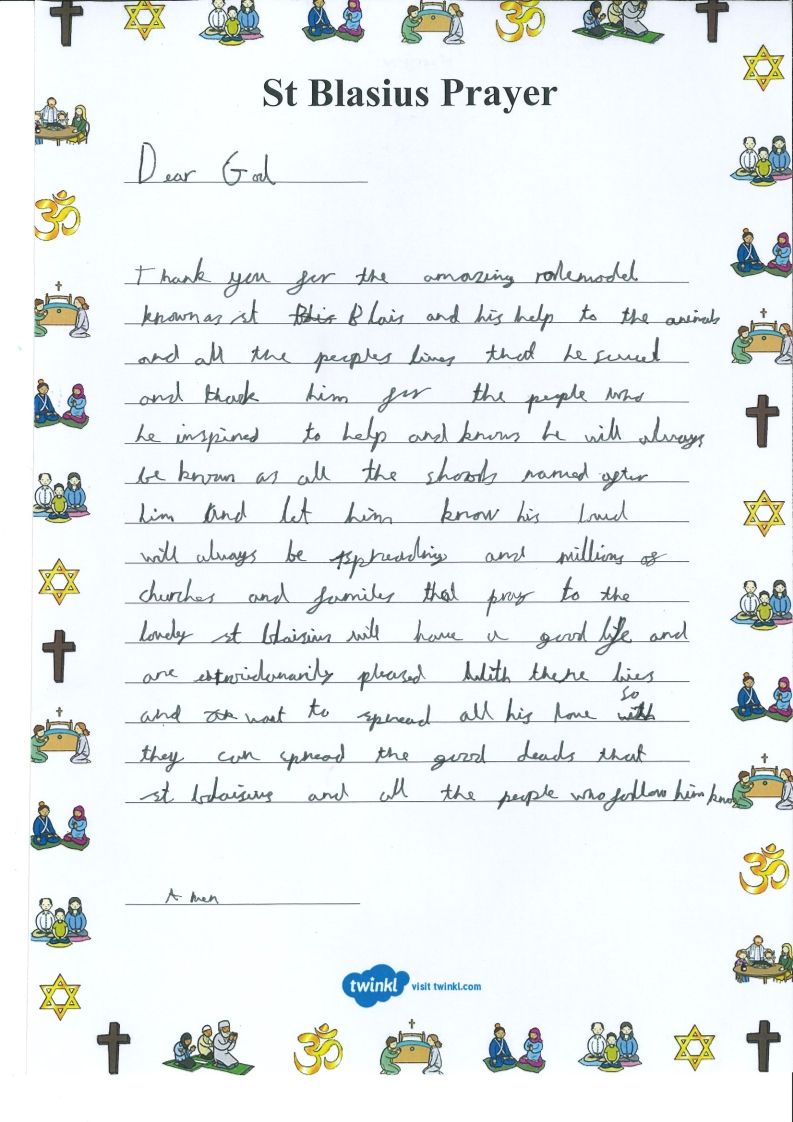 St Blasius Prayer
Dear God
Thank you for the amazing rolemodel
known as st Blais and his help to the animals
and all the peoples lives that he saved
and thank him for the people who
he inspired to help and knows he will always
be known as all the shools named after
him And let him know his
will always be spreading and millions of
churches and familes that pray to the
lovely st blaisius will have a good life and
are pleased with there lives
and want to spread all his love so
they can spread the good deads that
st blaisius and all the people who follow him know
A men
twinkl visit twinkl.com